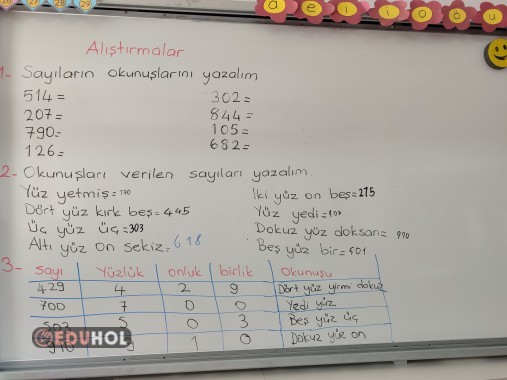 26 27 28 29
a e ı i o ö u
Alıştırmalar
1- Sayıların okunuşlarını yazalım
514= 302=
207= 844=
790= 105=
126= 682=
2- Okunuşları verilen sayıları yazalım.
Yüz yetmiş=170 İki yüz on beş=275
Dört yüz kırk beş=445 Yüz yedi=107
Üç yüz üç=303 Dokuz yüz doksan=990
Altı yüz on sekiz=618 Beş yüz bir=501
3- Sayı Yüzlük onluk birlik Okunuşu
429 4 2 9 Dört yüz yirmi dokuz
700 7 0 0 Yedi yüz
503 5 0 3 Beş yüz üç
EDUHOL 1 0 Dokuz yüz on